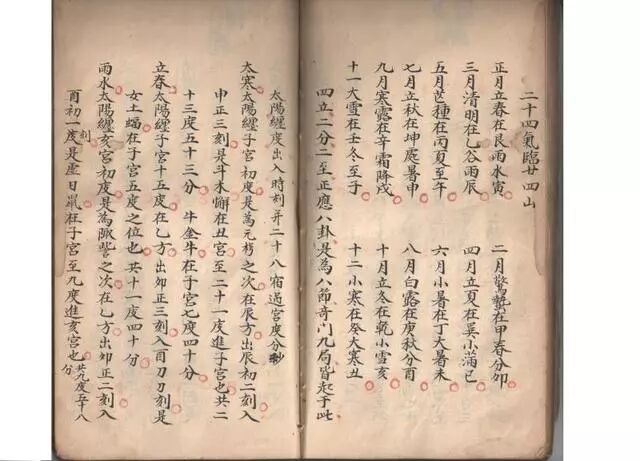 二十四氣臨廿四山
正月立春在艮雨水寅
二月驚蟄在甲春分卯
三月清明在乙谷雨辰
四月立夏在吴小滿巳
五月芒種在丙夏至午
六月小暑在丁大暑未
七月立秋在坤處暑申
八月白露在庚秋分酉
九月寒露在辛霜降戌
十月立冬在乾小雪亥
十一大雪在壬冬至子
十二小寒在癸大寒丑
四立二分二至正應八卦是為八節奇門九局皆起于此
太陽纏度出入時刻并二十八宿過宮度分秒
大寒太陽纏子宮初度是為元枵之次在辰方出辰初二刻入
申正三刻是斗木獬在丑宮至二十一度進子宮也共二
十三度五十三分 牛金牛在子宮七度四十分
立春太陽纏子宮十五度在乙方出卯正三刻入酉刀刻是
女土蝠在子宮五度之位也共十一度四十分
雨水太陽纏亥宮初度是為娵訾之次在乙方出卯正二刻入
酉初一刻度是虛日鼠在子宮至九度進亥宮也共九度五十八分